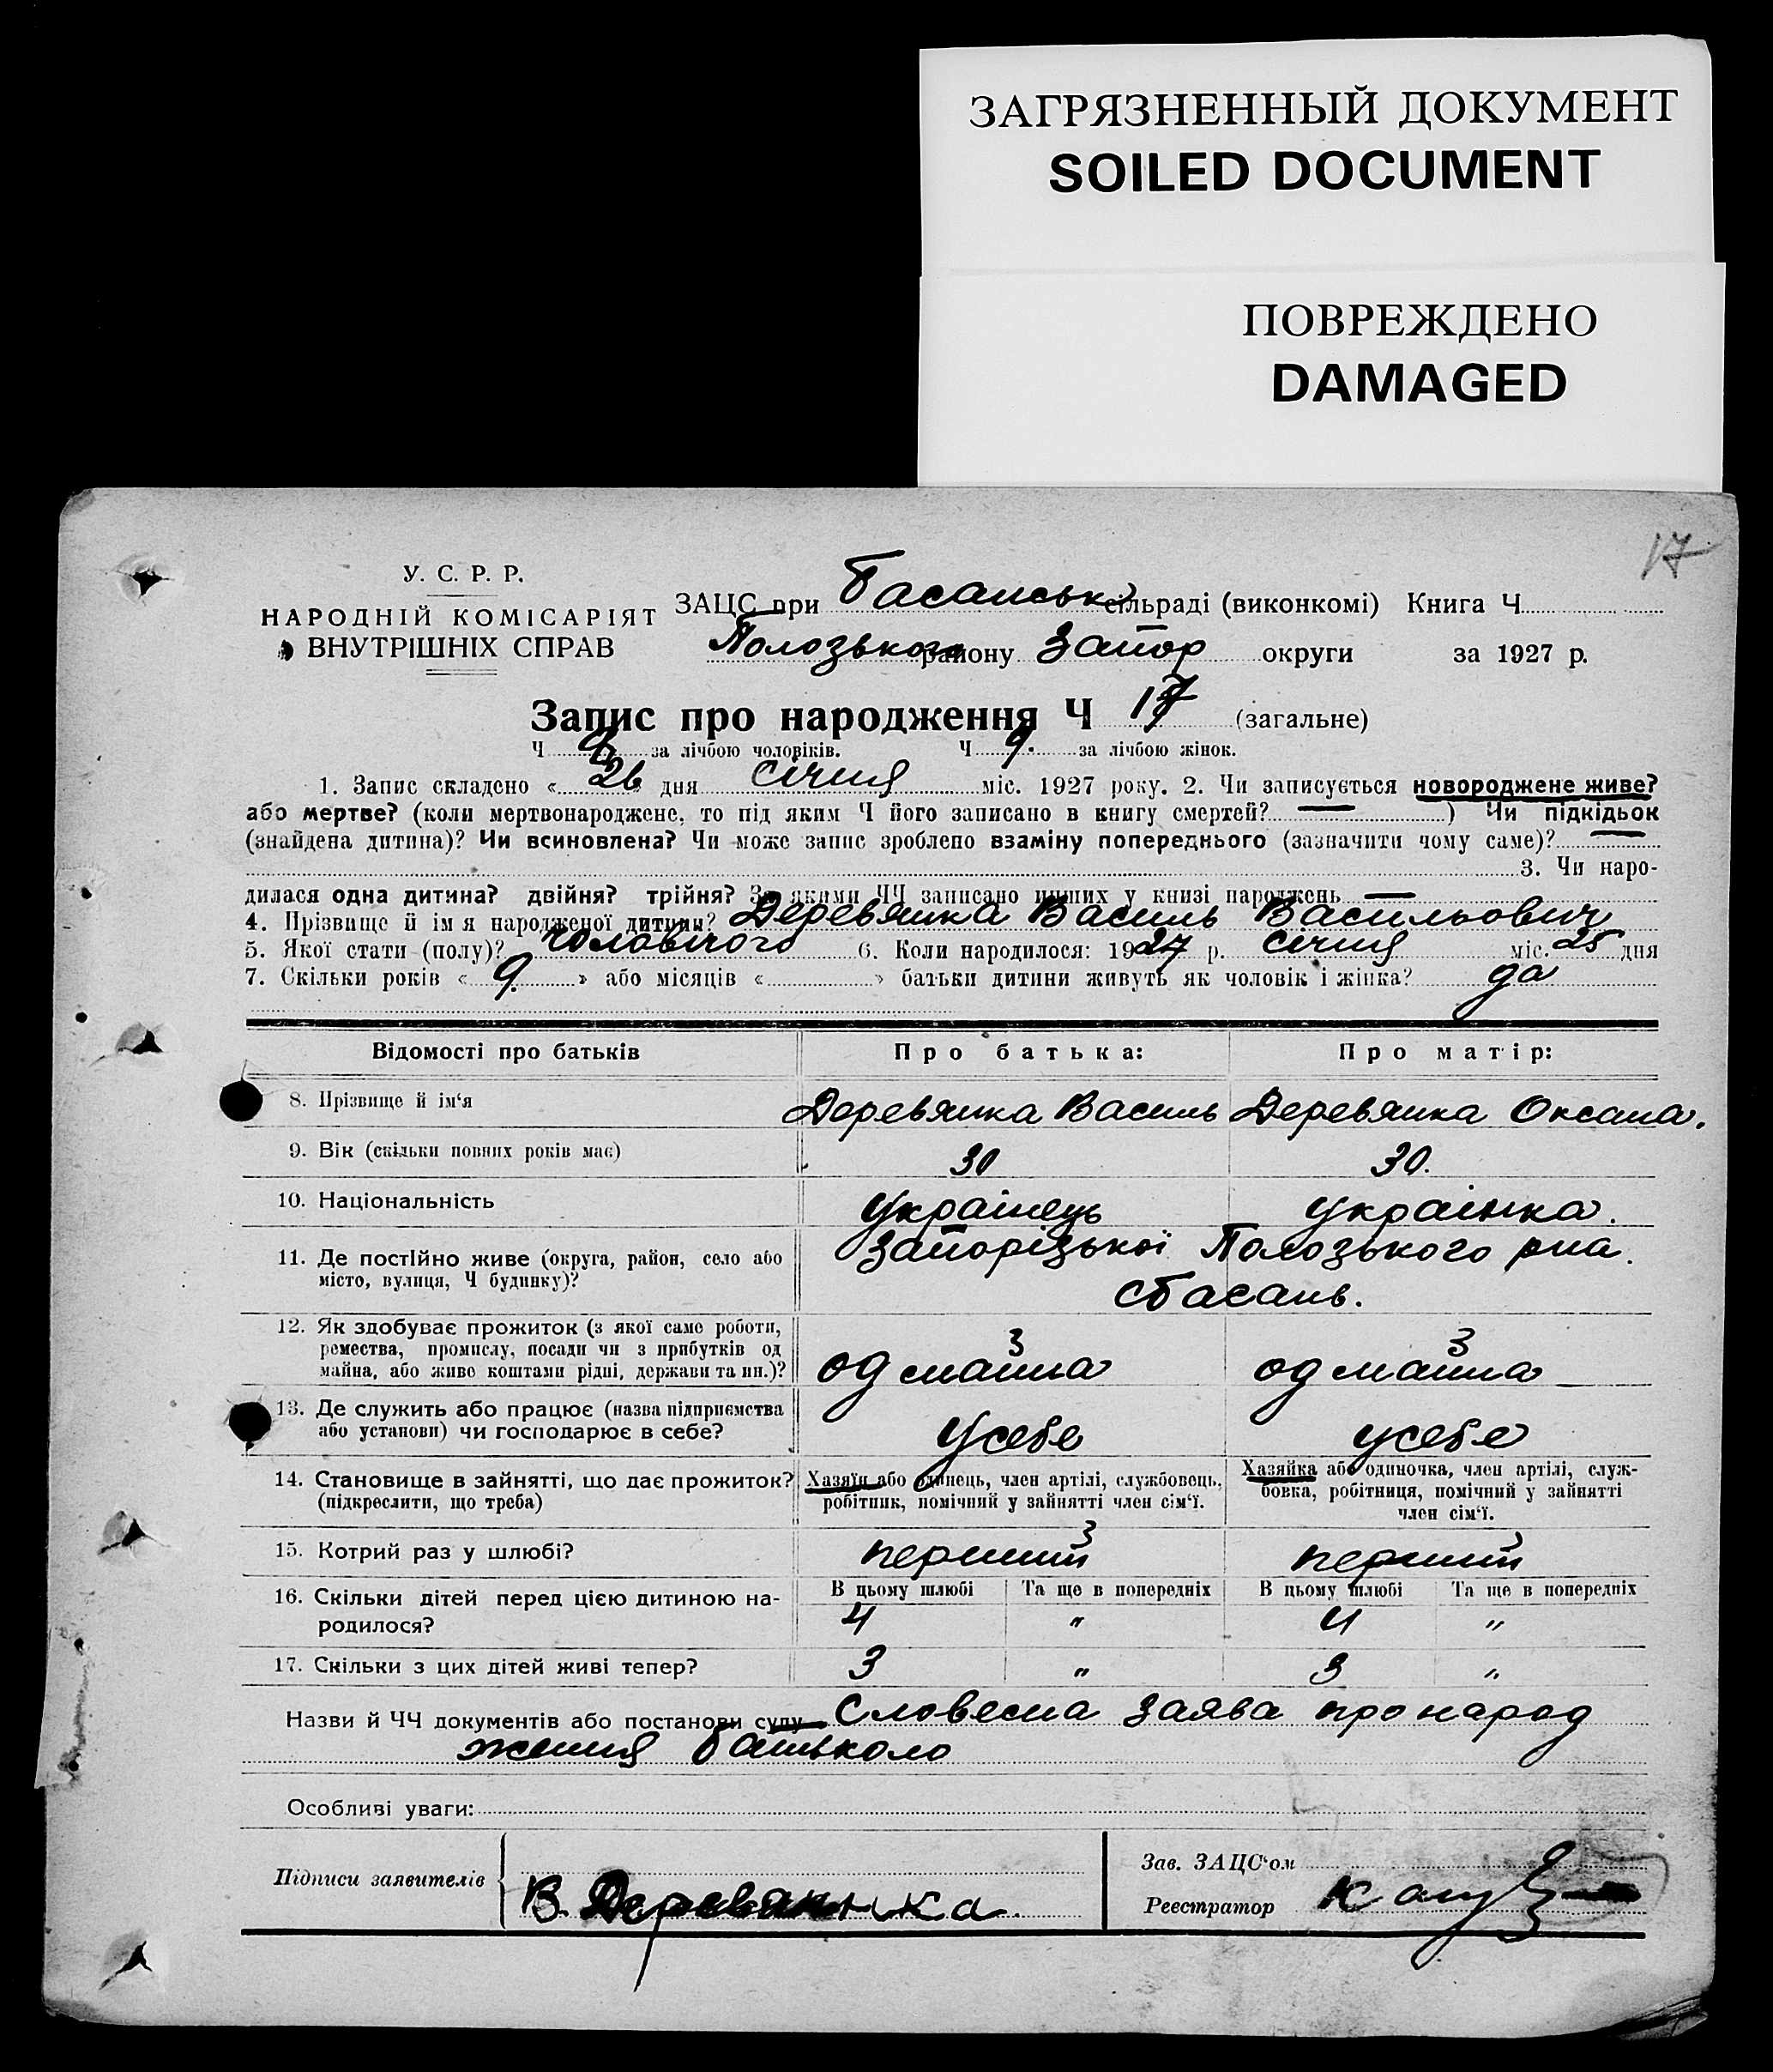 ЗАГРЯЗНЕННЫЙ ДОКУМЕНТ
SOILED DOCUMENT
ПОВРЕЖДЕНО
DAMAGED
17
У. С. Р. Р.
НАРОДНІЙ КОМІСАРІЯТ
ВНУТРІШНІХ СПРАВ
ЗАЦС при Басанськ сільраді (виконкомі) Книга Ч
Полозького району Запор округи за 1927 р.
Запис про народження Ч 17 (загальне)
Ч за лічбою чоловіків. Ч 9. за лічбою жінок.
1. Запис складено « 26 » дня січня міс. 1927 року. 2. Чи записується новороджене живе?
або мертве? (коли мертвонароджене, то під яким Ч його записано в книгу смертей? —) Чи підкідьок
(знайдена дитина)? Чи всиновлена? Чи може запис зроблено взаміну попереднього (зазначити чому саме)? —
3. Чи наро-
дилася одна дитина? двійня? трійня? За якими ЧЧ записано инших у книзі народжень —
4. Прізвище й ім я народженої дитини? Деревянка Василь Васильович
5. Якої стати (полу)? чоловічого 6. Коли народилося: 1927 р. січня міс. 25 дня
7. Скільки років « 9. » або місяців « » батьки дитини живуть як чоловік і жінка? да
Відомості про батьків Про батька: Про матір:
8. Прізвище й ім‘я Деревянка Василь Деревянка Оксана.
9. Вік (скільки повних років має) 30 30.
10. Національність Українець українка.
11. Де постійно живе (округа, район, село або Запорізької Полозького рна.
місто, вулиця, Ч будинку)? с Басань.
12. Як здобуває прожиток (з якої саме роботи, 3 3
ремества, промислу, посади чи з прибутків од
майна, або живе коштами рідні, держави та ин.)? од майна од майна
13. Де служить або працює (назва підприємства
або установи) чи господарює в себе? Усебе усебе
14. Становище в зайнятті, що дає прожиток? Хазяїн або одинець, член артілі, службовець, Хазяйка або одиночка, член артілі, служ-
(підкреслити, що треба) робітник, помічний у зайнятті член сім‘ї. бовка, робітниця, помічний у зайнятті
член сім‘ї.
15. Котрий раз у шлюбі? перший 3 перший 3
16. Скільки дітей перед цією дитиною на- В цьому шлюбі Та ще в попередніх В цьому шлюбі Та ще в попередніх
родилося? 4 " 4 "
17. Скільки з цих дітей живі тепер? 3 " 3 "
Назви й ЧЧ документів або постанови суду Словесна заява про народ
ження батьком
Особливі уваги:
Підписи заявителів В. Деревянка.
Зав. ЗАЦС‘ом
Реєстратор